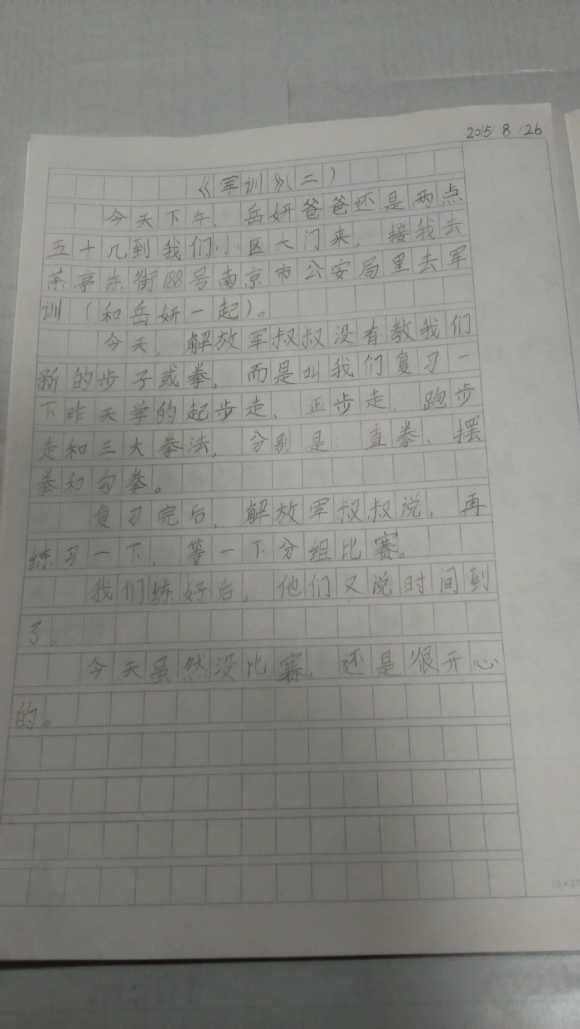 2015 8 26
《军训》(二)
今天下午,岳妍爸爸还是两点
五十几到我们小区大门来,接我去
茶亭东街188号南京市公安局里去军
训(和岳妍一起)。
今天,解放军叔叔没有教我们
新的步子或拳,而是叫我们复习一
下昨天学的起步走、正步走、跑步
走和三大拳法,分别是:直拳、摆
拳和勾拳。
复习完后,解放军叔叔说,再
练习一下,等一下分组比赛。
我们练好后,他们又说时间到
了。
今天虽然没比赛,还是很开心
的。